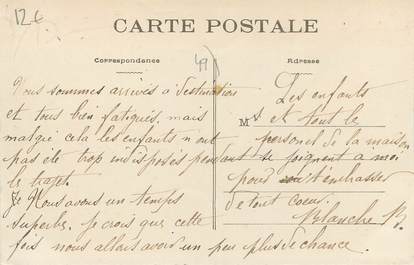 12€
CARTE POSTALE
Correspondance
49
Adresse
Nous sommes arrivés à destination
et tous bien fatigués, mais
malgré cela les enfants n ont
pas été trop indisposés pendant
le trajet.
Je Nous avons un temps
superbe, je crois que cette
fois nous allons avoir un peu plus de chance.
Les enfants
M et tout le
personel de la maison
se joignent a moi
pour t'embrasser
de tout coeur.
Blanche R.